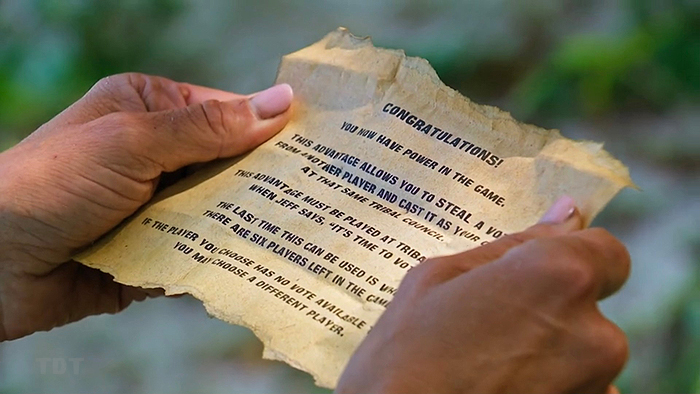 CONGRATULATIONS!
YOU NOW HAVE POWER IN THE GAME.
THIS ADVANTAGE ALLOWS YOU TO STEAL A
FROM ANOTHER PLAYER AND CAST IT AS YOUR
AT THAT SAME TRIBAL COUNCIL.
THIS ADVANTAGE MUST BE PLAYED AT
WHEN JEFF SAYS, "IT'S TIME TO
THE LAST TIME THIS CAN BE USED IS
THERE ARE SIX PLAYERS LEFT IN THE
IF THE PLAYER YOU CHOOSE HAS NO VOTE AVAILABLE
YOU MAY CHOOSE A DIFFERENT PLAYER.
TDT